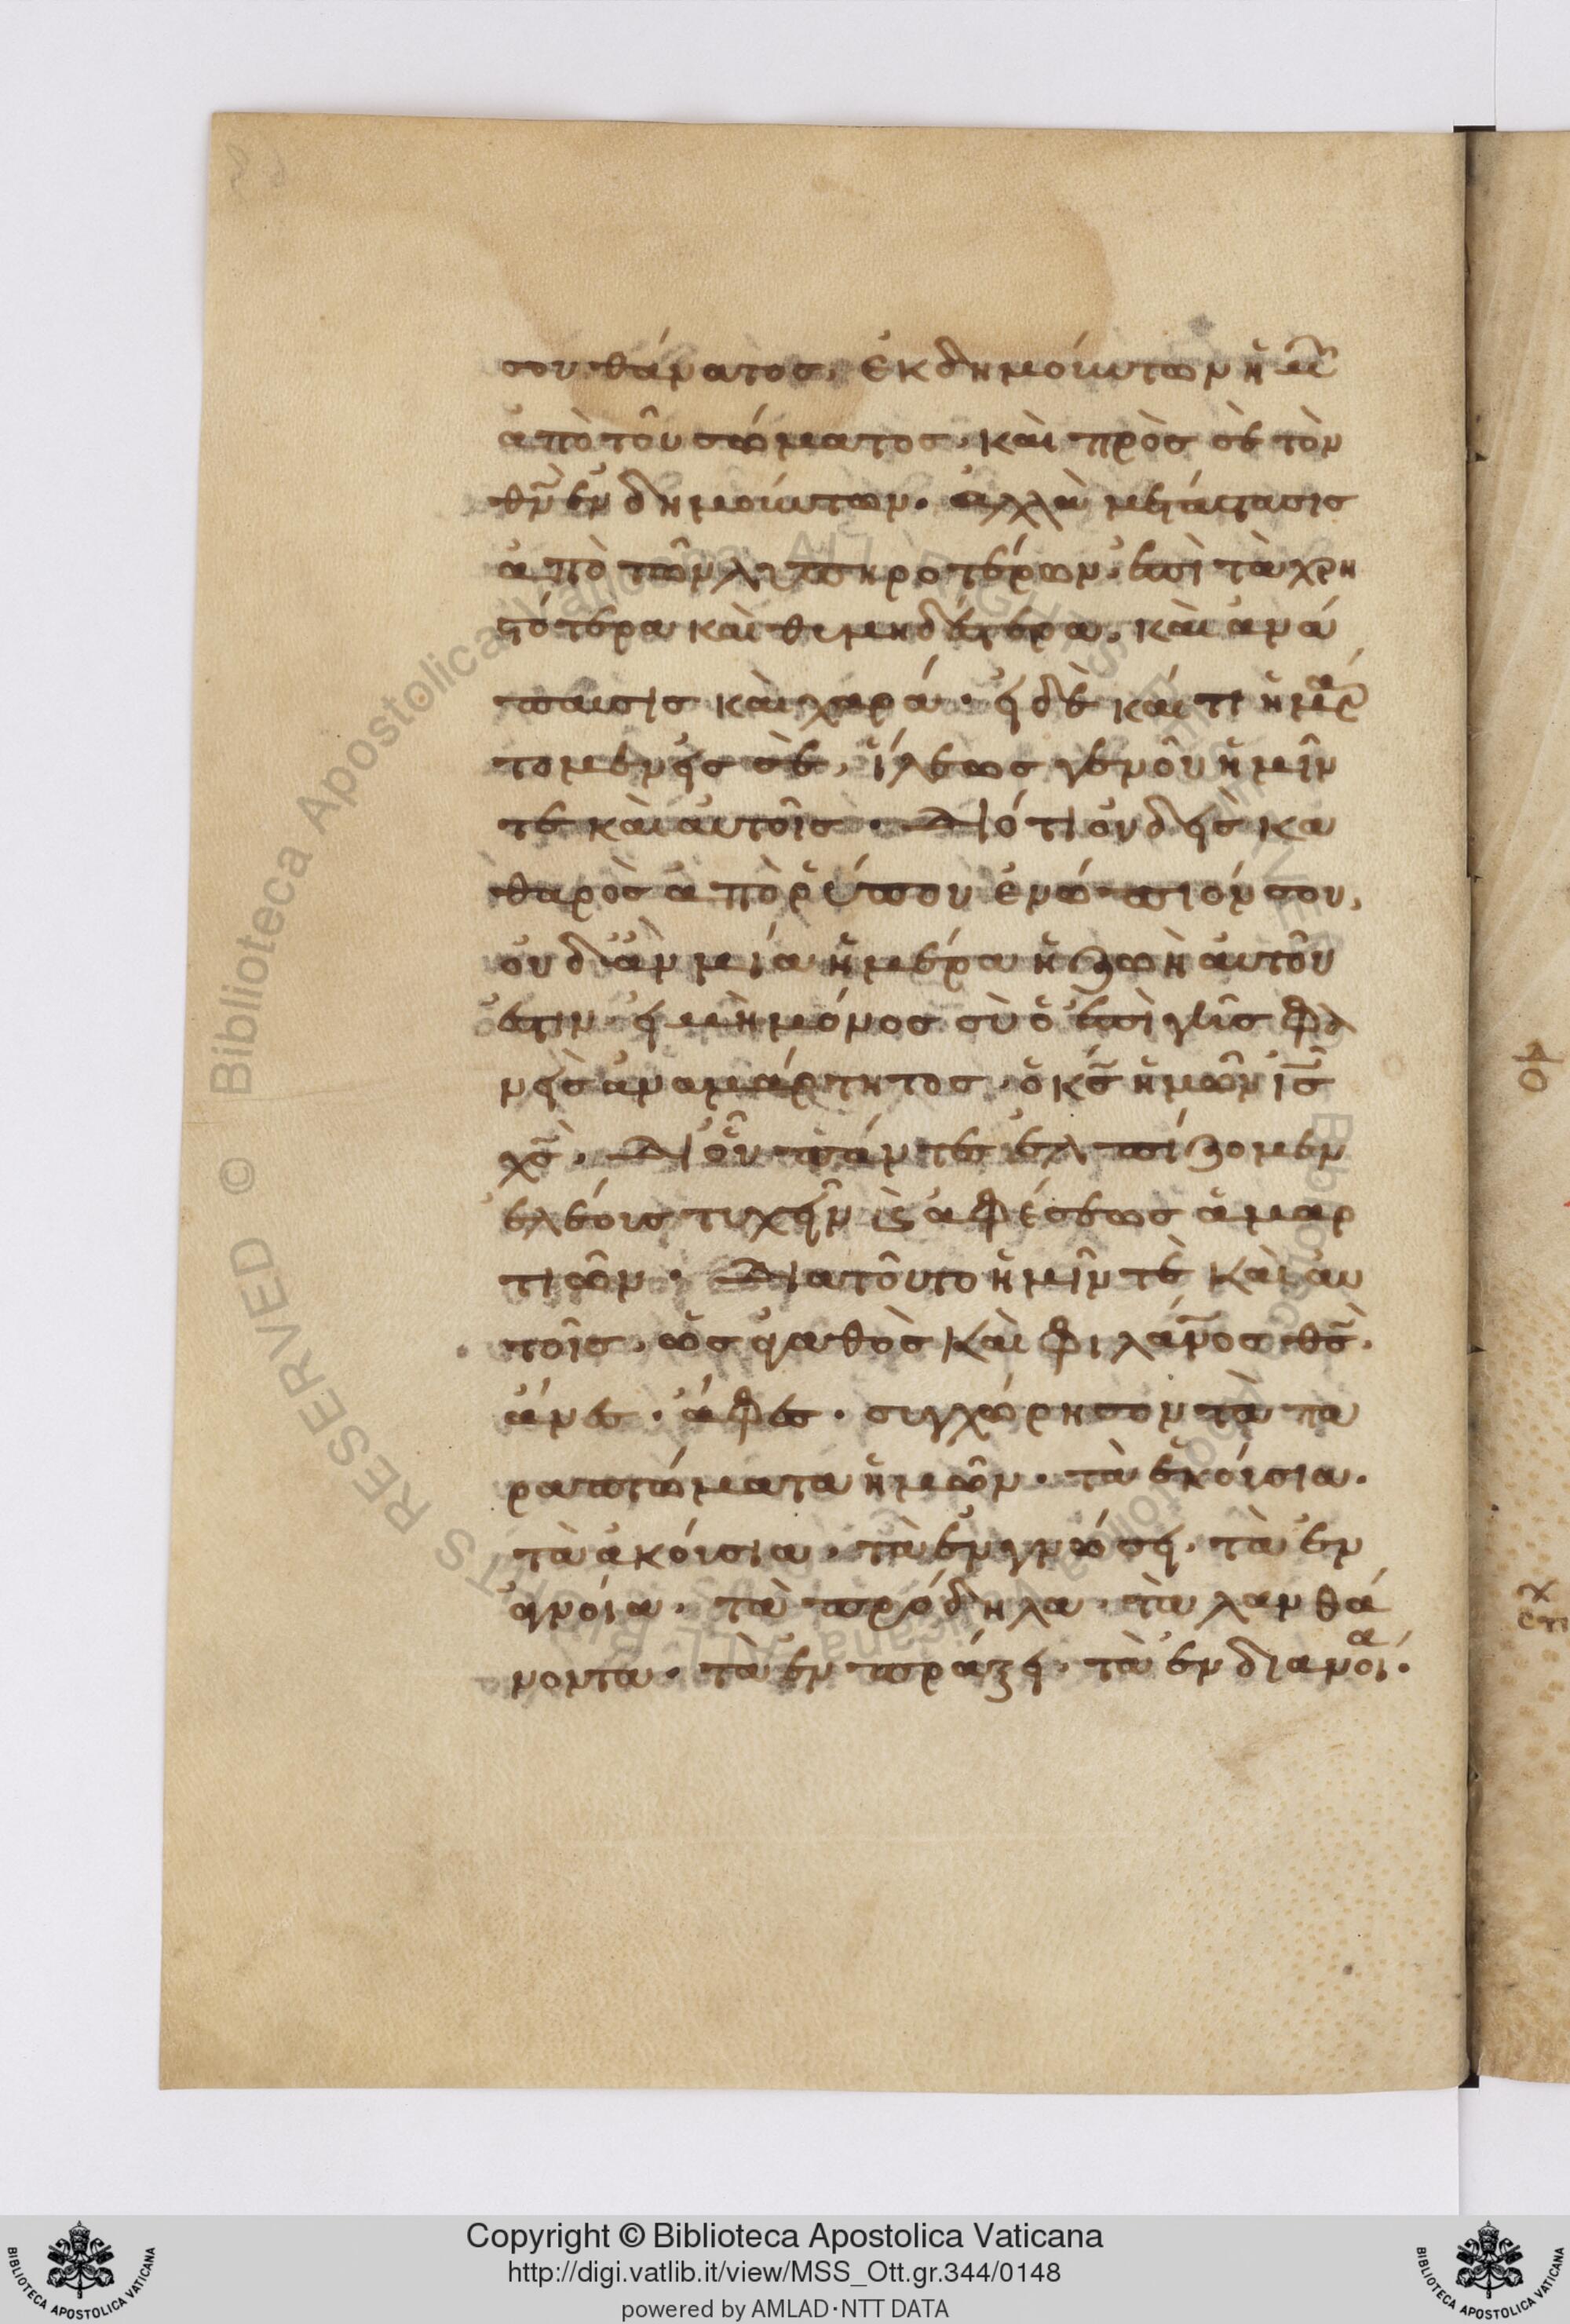 σου θάνατος, ἐκδημούντων ἡμῶ
ἀπὸ τοῦ σώματος, καὶ πρὸς σὲ τὸν
θν̅ ἐνδημούντων. ἀλλὰ μετάστασις
ἀπὸ τῶν λυπηροτέρων, ἐπὶ τὰ χρη
στότερα καὶ θυμηδέστερα, καὶ ἀνά
παυσις καὶ χαρά. εἰ δὲ κάι τι ἡμάρ
τομεν εἰς σὲ, ἵλεως γενοῦ ἡμῖν
τε καὶ αὐτοῖς. Διότι οὐδεὶς κα
θαρὸς ἀπὸ ῥύπου ἐνώπιόν σου,
οὐδ' ἂν μία ἡμέρα ἡ ζωὴ αὐτοῦ
ἐστιν. εἰ μὴ μόνος σὺ ὁ ἐπὶ γῆς φα
νεὶς ἀναμάρτητος, ὁ κς̅ ἡμῶν ις̅
χς̅. Δι' οὗ πάντες ἐλπίζομεν
ἐλέους τυχεῖν καὶ ἀφέσεως ἁμαρ
τιῶν. Διατοῦτο ἡμῖν τὲ καὶ αὐ
τοῖς, ὡς ἀγαθὸς καὶ φιλάν̅ος θς̅.
ἄνες. ἄφες. συγχώρησον τὰ πα
ραπτώματα ἡμῶν. τὰ ἑκούσια.
τὰ ἀκούσια, τὰ ἐν γνώσει, τὰ ἐν
ἀγνοία. τὰ πρόδηλα. τὰ λανθά
νοντα. τὰ ἐν πράξει. τὰ ἐν διανοία.
Copyright © Biblioteca Apostolica Vaticana
http://digi.vatlib.it/view/MSS_Ott.gr.344/0148
powered by AMLAD·NTT DATA